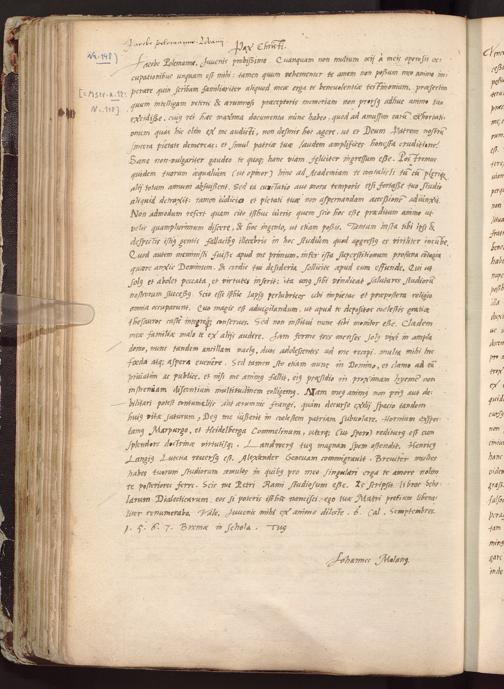 Jacobo polemanno
Pax Christi.
Jacobe Polemanne, Juvenis probissime. Quanquam non multum ocij à meis operosis oc-
cupationibus unquam est mihi: tamen quum vehementer te amem non possum meo animo im-
perare quin scribam familiariter aliquid meae erga te benevolentiae testimonium, praesertim
quum intelligam veteris & aerumnosi praeceptoris memoriam non prorsus adhuc animo tuo
excidisse. cuius rei haec maxima documenta nunc habeo, quod ad amussim earum exhortati-
onum quas hic olim ex me audisti, non desinis hoc agere, ut et Deum Patrem nostrum
sincera pietate demerearis: et simul patriae tuae laudem amplifices honesta eruditione.
Sane non vulgariter gaudeo te quoque hanc viam feliciter ingressum esse. Postremus
quidem tuorum aequalium (ut opinor) hinc ad Academiam te contulisti tum cum plerique
alij totum annum abfuissent. Sed ea cunctatio aut mora temporis etsi fortasse tuo studio
aliquid detraxit: tamen iudicio et pietati tuae non aspernandam accessionem adiunxit.
Non admodum refert quam cito isthuc ieris quum scio hoc esse praeditum animo ut
velis quamplurimum discere, & hoc ingenio, ut etiam possis. Tantum insta tibi ipsi &
despectis istis generis fallacibus illecebris in hoc studium quod aggressus es viriliter incumbe.
Quod autem meministi fuisse apud me primum, infer ista superstitionum profana colluvie
quaere anxie Dominum, & cordis tui desideria sollicite apud eum effunde. Qui ut
solus et abolet peccata, et virtutes inserit: ita unus sibi vendicat salutares studiorum
nostrorum successus. Scio esse istic lapsus perlubricos ubi impietas et praepostera religio
omnia occuparint. Quo magis est advigilandum, ut apud te depositos coelestis gratiae
thesauros caste integresque conserves. Sed non institui nunc tibi monitor esse. Cladem
meae familiae malo te ex alijs audire. Jam ferme tres menses solus vixi in ampla
domo, nunc tandem ancillam vnam, duos adolescentes ad me recepi. multa mihi inc
foeda atque aspera evenere. Sed tamen sto etiam nunc in Domino, et clamo ad eum
privatim ac publice, et nisi me animus fallit, eius praesidio in proximam hyemem non
instrenuam discentium multitudinem colligemus. Nam meus animus non prius aut de-
bilitari potest contumelijs aut aerumnis frangi, quam decurso exilij spacio tandem
huius vitae saturum, Deus me iusserit in coelestem patriam subvolare. Hermannum exspec-
tamus Marpurgo, et Heidelberga Commelinum, uterque (ut spero) rediturus est cum
splendore doctrinae virtutisque. Landwerus tuus magnam spem ostendit. Henricus
Langius Lutetia reversus est. Alexander Genevam commigravit. Breviter multos
habes tuorum studiorum aemulos in quibus pro meo singulari erga te amore nolim
te posteriores ferre. Scis me Petri Rami studiosum esse. Is scripsit libros scho-
larum Dialecticarum. eos si poteris istic nancisci: ego tuae Matri pretium libera-
liter renumerabo. Vale, Juvenis mihi ex animo dilecte. 6. Cal. Septembres
1. 5. 6. 7. Bremae in Schola. Tuus
Johannes Molanus.